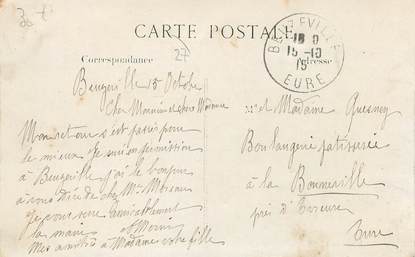 CARTE POSTALE
Correspondance
Adresse
27
BEUZEVILLE
18 0
15-10
15
EURE
Beuzeville 15 Octobre
Cher Monsieur et chère Madame
Mon retour s'est passé pour
le mieux. Je suis en permission
à Beuzeville j'ai le bonjour
à vous dire de chez Mr
Je vous serre amicalement
la main
Mes amitiés à Madame votre fille
Mr et Madame Quesney
Boulangerie patisserie
à la Bonneville
près d'Evreux
Eure